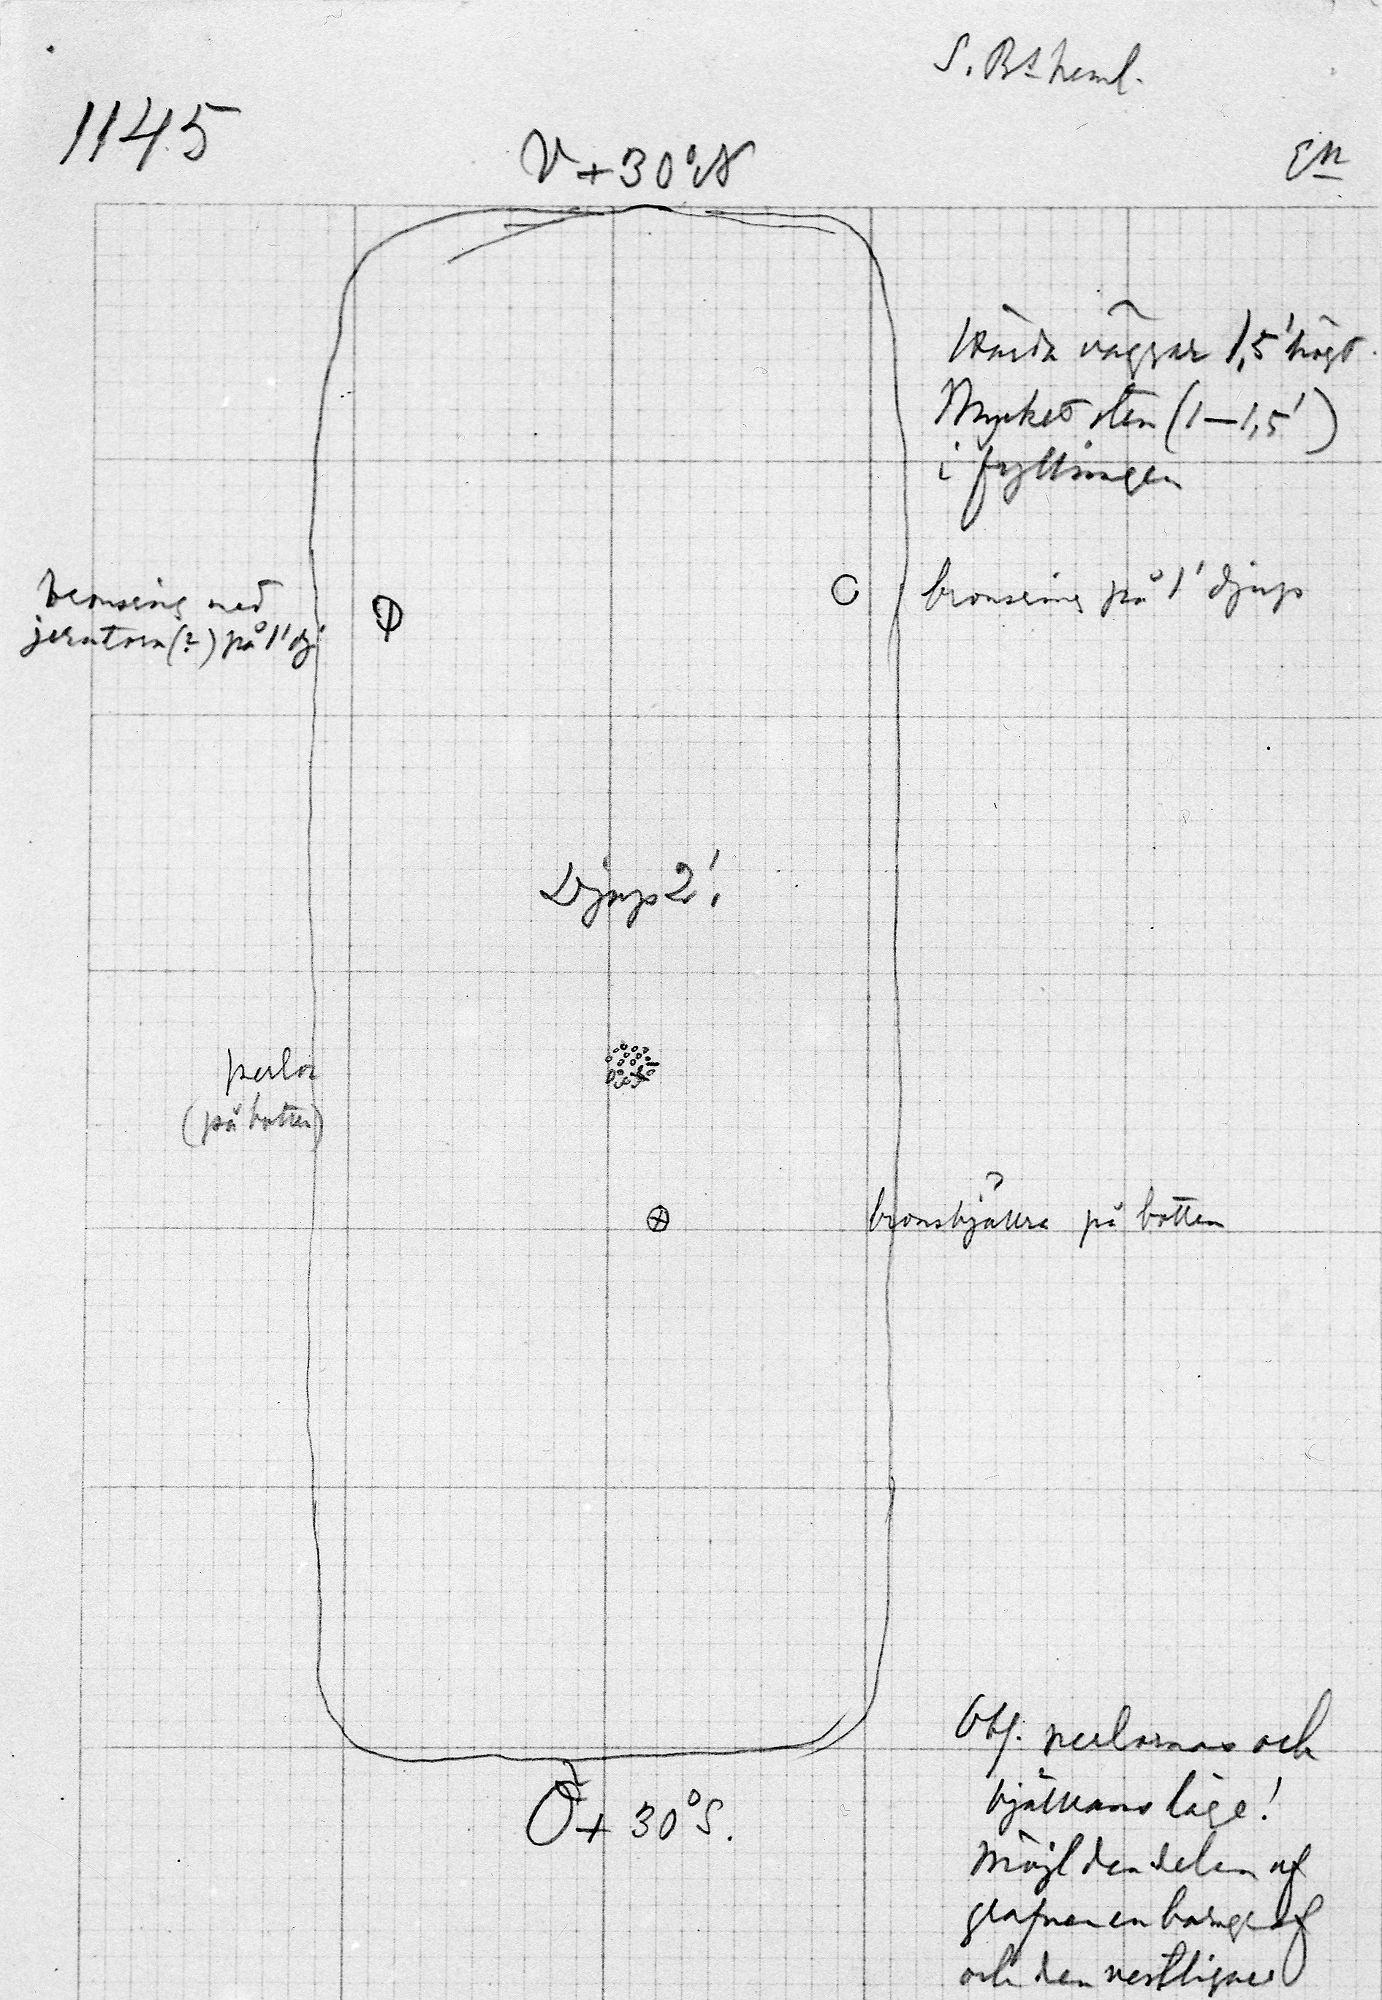 S. Bs heml.
1145
V + 30° N
En
Hårda väggar 1,5' högt.
Mycket sten (1—1,5')
i fyllningen
bronsring med
jerntorn(?) på 1' dj
bronsring på 1' djup
Djup 2'.
perlor
(på botten)
bronsbjällra på botten
Ö + 30° S.
Obs. perlornas och
bjällrans läge!
Möjl den delen af
grafven en barngraf
och den vestligare